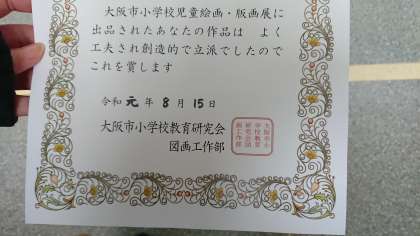 大阪市小学校児童絵画・版画展に
出品されたあなたの作品は よく
工夫され創造的で立派でしたので
これを賞します
令和元年8月15日
大阪市小学校教育研究会
図画工作部
大阪市小
学校教育
研究会図
画工作部